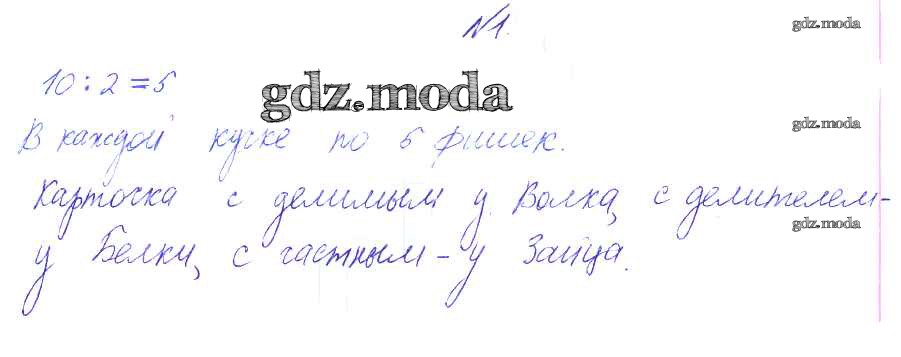 №1.
gdz.moda
10:2=5
gdz.moda
В каждой кучке по 5 фишек.
gdz.moda
Карточка с делимым у Волка, с делителем-
gdz.moda
у Белки, с частным - у Зайца.